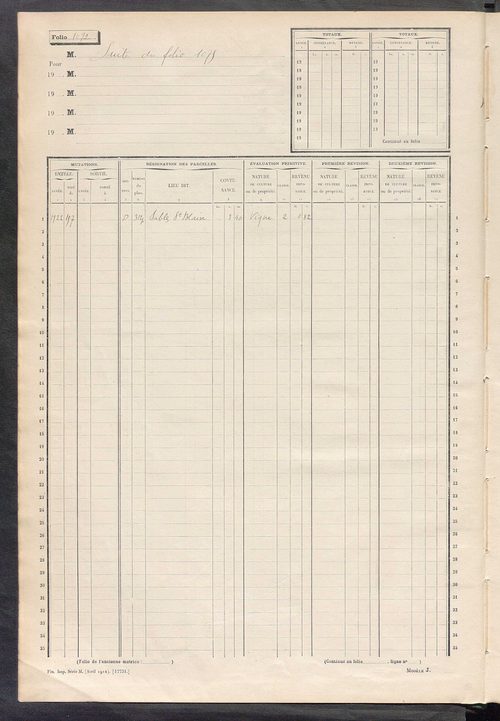 Folio
M. Suite du folio
Pour
19 M.
19 M.
19 M.
19 M.
TOTAUX. TOTAUX.
ANNÉE. CONTENANCE. REVENU. ANNÉE. CONTENANCE. REVENU.
19 19
19 19
19 19
19 19
19 19
19 19
19 19
19 19
19 19
19
Continué au folio
MUTATIONS. DÉSIGNATION DES PARCELLES. ÉVALUATION PRIMITIVE. PREMIÈRE RÉVISION. DEUXIÈME RÉVISION.
ENTRÉE. SORTIE.
LIEU DIT. CONTENANCE. NATURE DE CULTURE ou de propriété. CLASSE. REVENU IMPOSABLE NATURE DE CULTURE ou de propriété. CLASSE. REVENU IMPOSABLE NATURE DE CULTURE ou de propriété. CLASSE. REVENU IMPOSABLE
1 1922 D Vigne 2 1
2 2
3 3
4 4
5 5
6 6
7 7
8 8
9 9
10 10
11 11
12 12
13 13
14 14
15 15
16 16
17 17
18 18
19 19
20 20
21 21
22 22
23 23
24 24
25 25
26 26
27 27
28 28
29 29
30 30
31 31
32 32
33 33
34 34
35 35
(Folio de l'ancienne matrice : ) (Continué au folio , ligne n° )
Fin. Imp. Série M. (Avril 1912). [17751.] MODÈLE J.